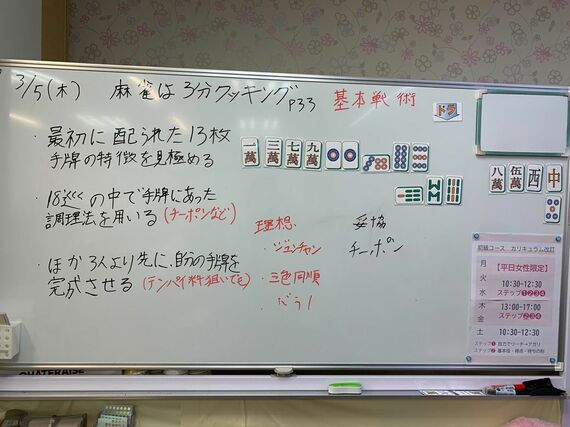 3/5(木) 麻雀は3分クッキングP33 基本戦術
ドラ
・最初に配られた13枚
手牌の特徴を見極める
一萬 三萬 七萬 九萬
八萬 伍萬 西 中
・18巡くの中で手牌にあった
調理法を用いる(チーポンなど)
理想
妥協
・ジュンチャン
チーポン
・ほか3人より先に、自分の手牌を
完成させる(テンパイ料狙いでも)
・三色同順
・ドラ1
初級コース カリキュラム改訂
月 【平日女性限定】
火 10:30-12:30
水 ステップ1234
木 13:00-17:00
金 ステップ234
土 10:30-12:30
ステップ1 自力でリーチ→アガリ
ステップ2 基本役・得点・待ちの形
CHATERAISE